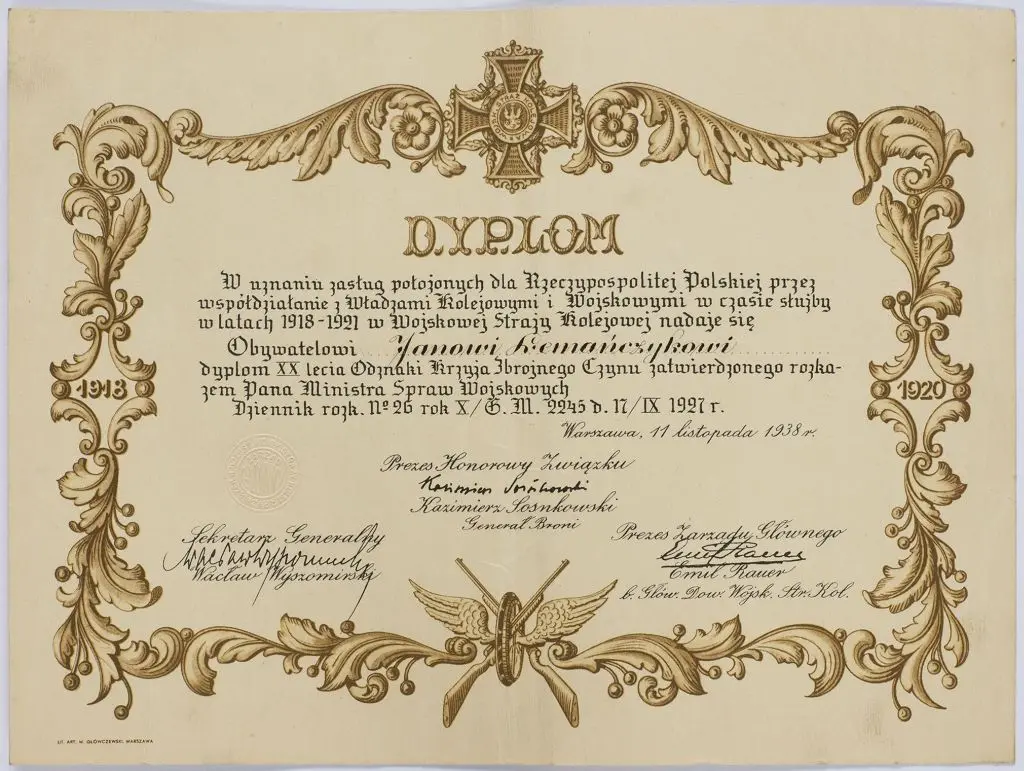 DYPLOM
W uznaniu zasług położonych dla Rzeczypospolitej Polskiej przez
współdziałanie z Władzami Kolejowymi i Wojskowymi w czasie służby
w latach 1918-1921 w Wojskowej Straży Kolejowej nadaje się
Obywatelowi Janowi Remańczykowi
dyplom XX lecia Odznaki Krzyża Zbrojnego Czynu zatwierdzonego rozka-
zem Pana Ministra Spraw Wojskowych
Dziennik rozk. Nº 26 rok X/G. M. 2245 d. 17/IX 1927 r.
1918
1920
Warszawa, 11 listopada 1938 r.
Prezes Honorowy Związku
Kazimierz Sosnkowski
Kazimierz Sosnkowski
Generał Broni
Sekretarz Generalny
Wacław Wyszomirski
Prezes Zarządu Głównego
Emil Rauer
Emil Rauer
b. Głów. Dow. Wojsk. Str. Kol.
LIT. ART. W. GŁÓWCZEWSKI, WARSZAWA